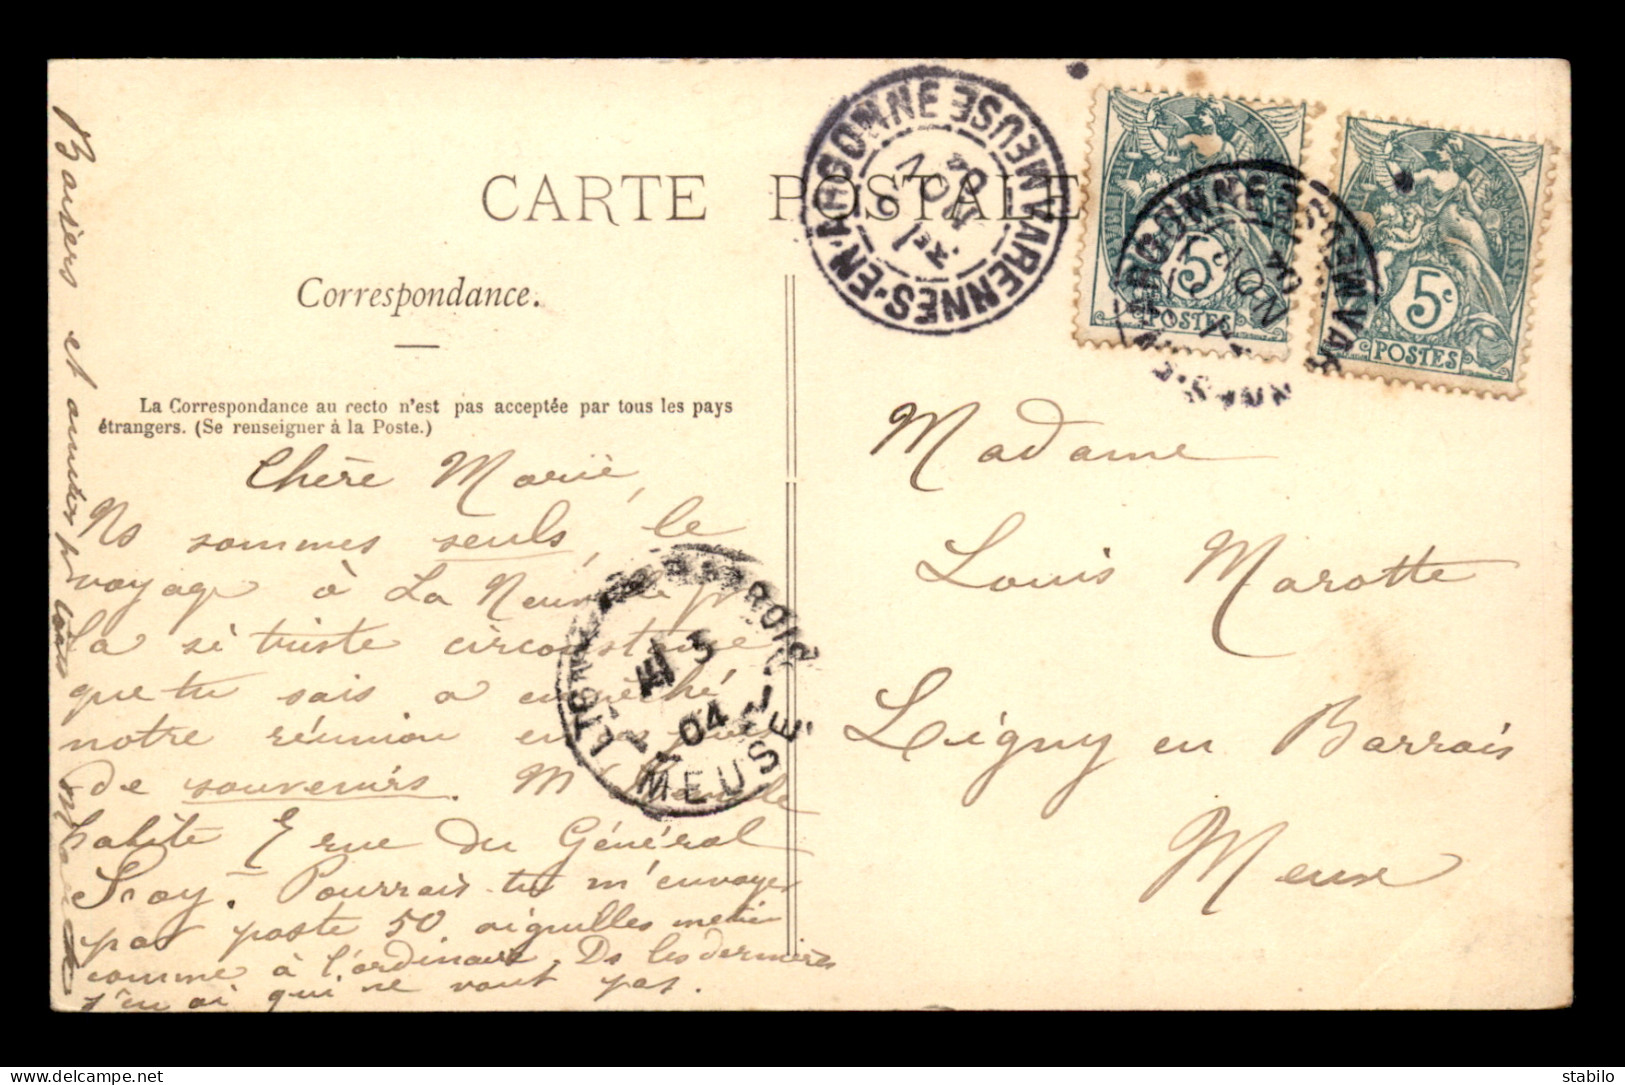 CARTE POSTALE
Correspondance.
La Correspondance au recto n'est pas acceptée par tous les pays
étrangers. (Se renseigner à la Poste.)
Chère Marie,
Ns sommes seuls, le
voyage à La Neuville pr
la si triste circonstance
que tu sais a empêché
notre réunion
de souvenirs. Melle
habite rue du Général
Pourrais-tu m'envoyer
par poste 50 aiguilles
comme à l'ordinaire. Ds les dernières
j'en ai qui ne vont pas.
Baisers et amitiés pr tous
VARENNES-EN-ARGONNE MEUSE
NOV
04
RÉPUBLIQUE FRANÇAISE
5c
POSTES
VARENNES-EN-ARGONNE MEUSE
NOV
04
RÉPUBLIQUE FRANÇAISE
5c
POSTES
LIGNY-EN-BARROIS
3
04
MEUSE
Madame
Louis Marotte
Ligny en Barrois
Meuse
delcampe.net
stabilo